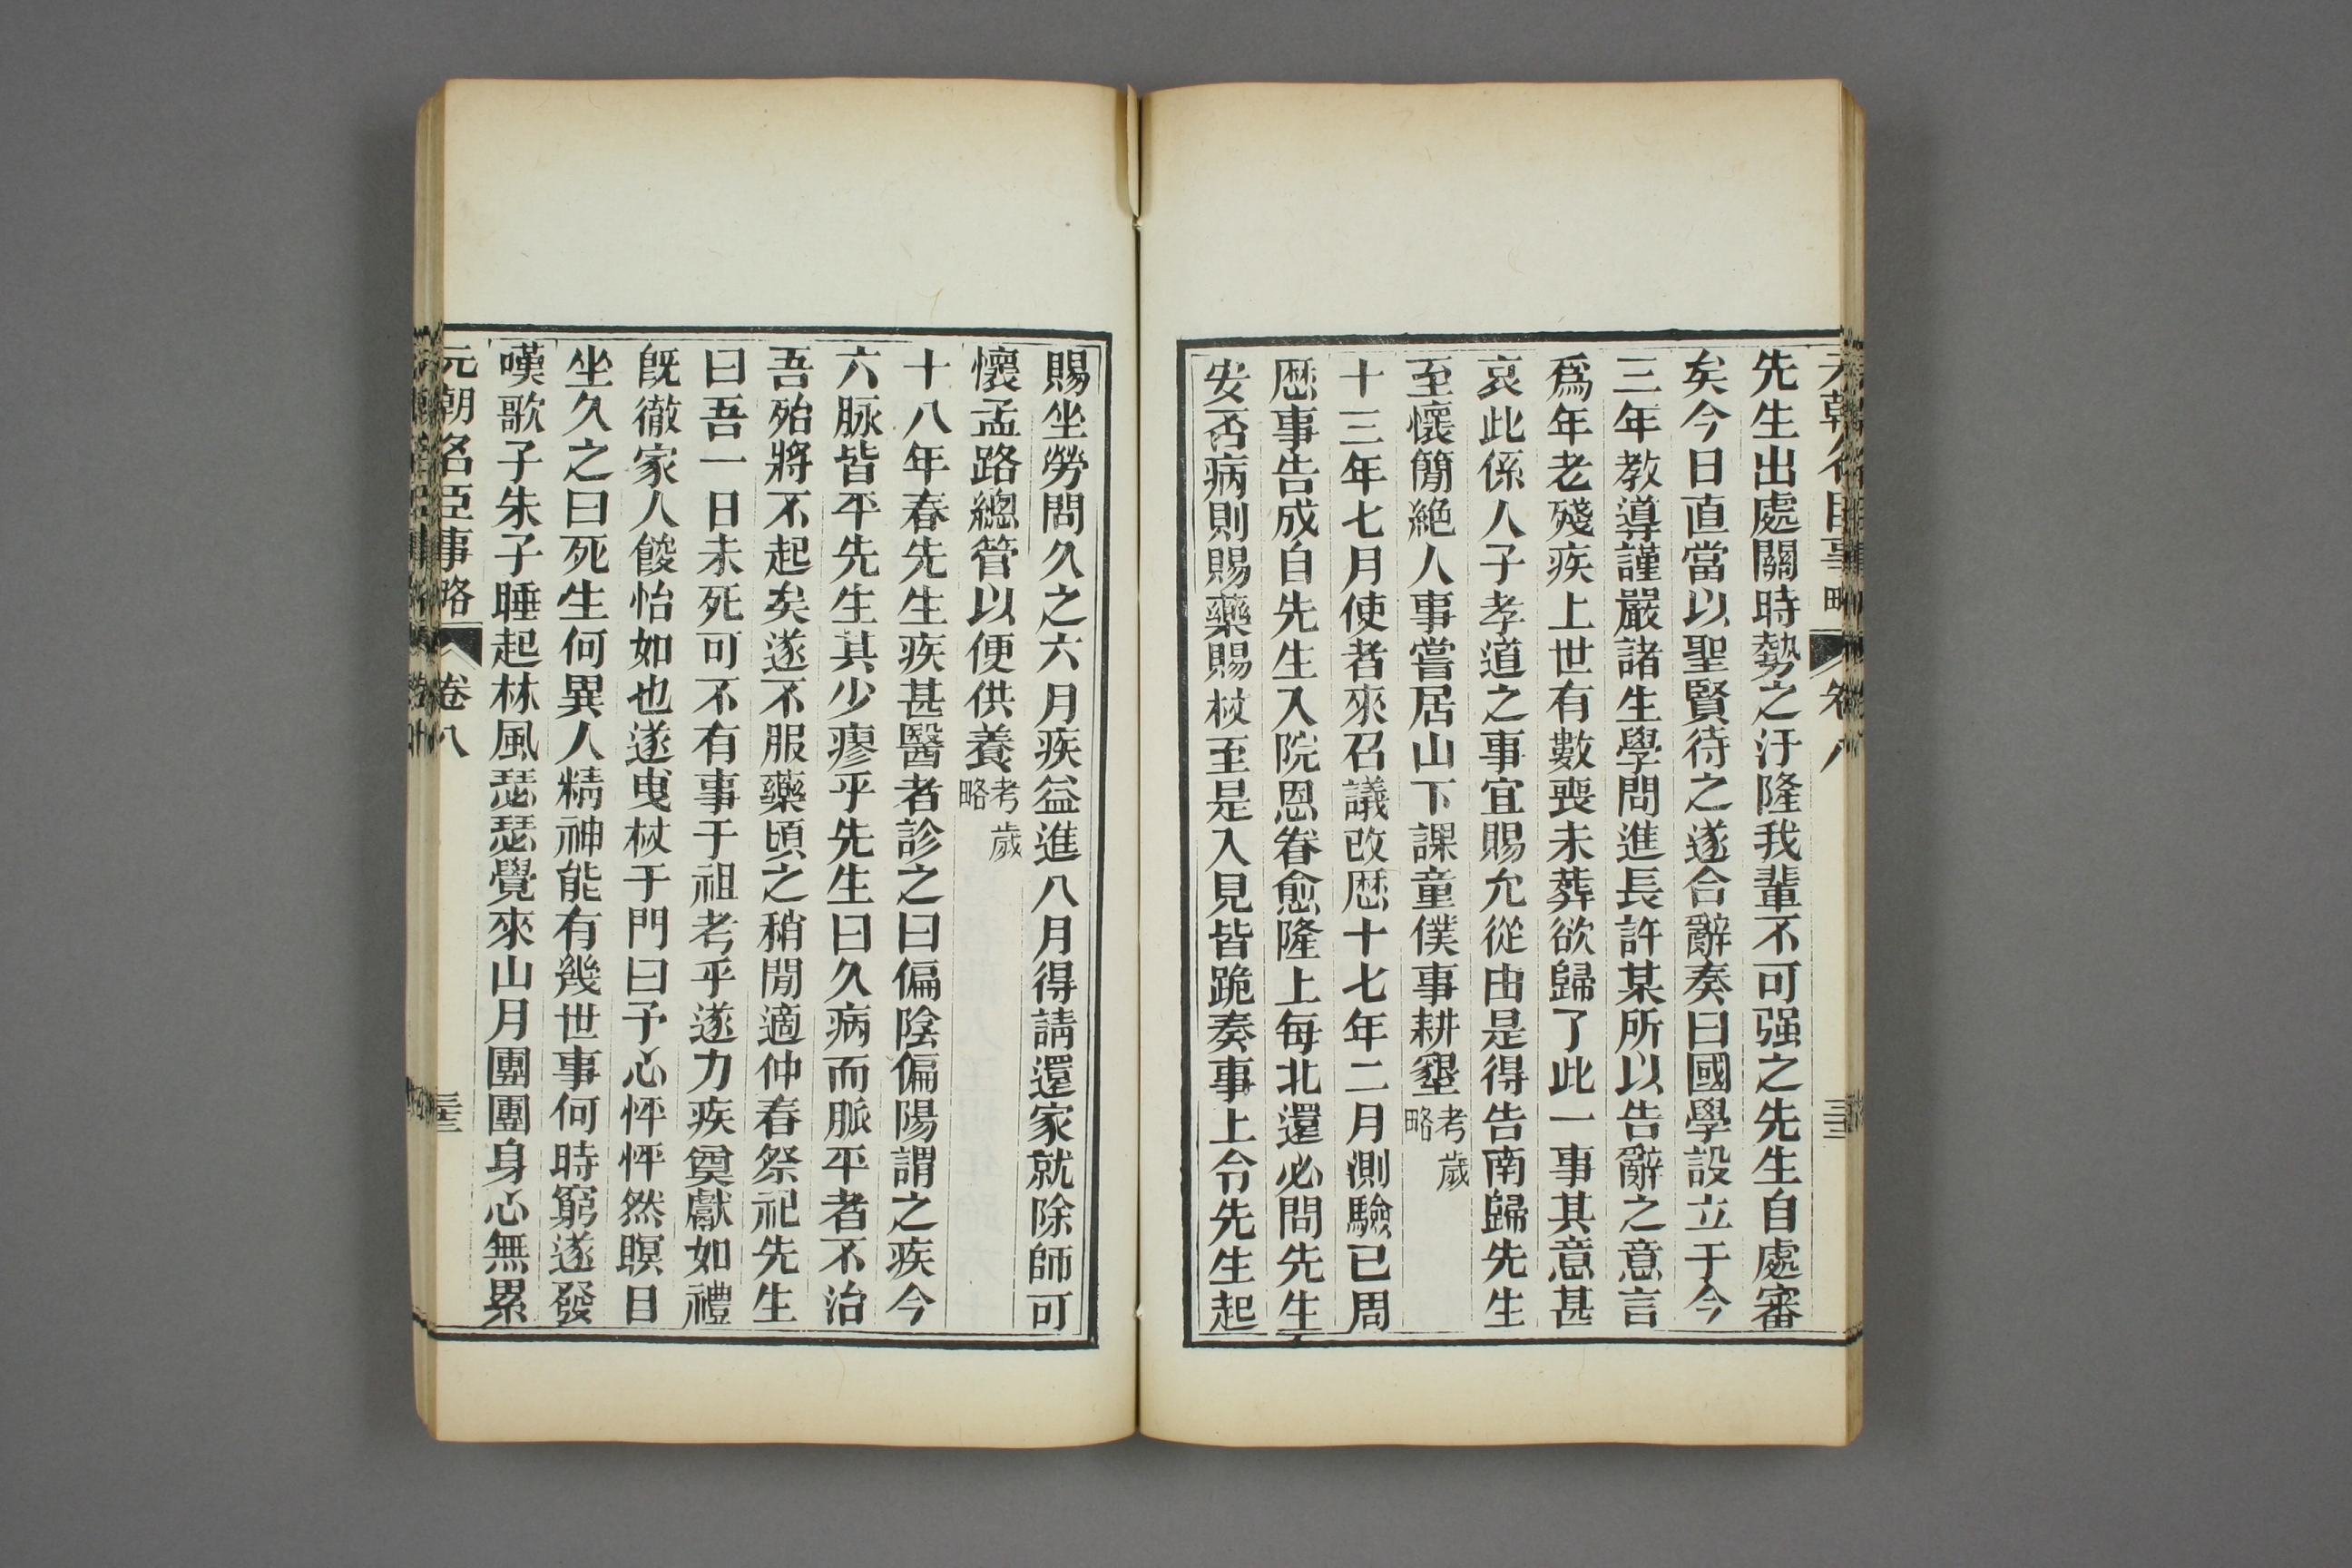 先生出處關時勢之汙隆我輩不可强之先生自處審
矣今日直當以聖賢待之遂合辭奏曰國學設立于今
三年教導謹嚴諸生學問進長許某所以告辭之意言
爲年老殘疾上世有數喪未葬欲歸了此一事其意甚
哀此係人子孝道之事宜賜允從由是得告南歸先生
至懷簡絕人事嘗居山下課童僕事耕墾考歲略
十三年七月使者來召議改歴十七年二月測驗已周
歴事告成自先生入院恩眷愈隆上每北還必問先生
安否病則賜藥賜杖至是入見皆跪奏事上令先生起
賜坐勞問久之六月疾益進八月得請還家就除師可
懷孟路總管以便供養考歲略
十八年春先生疾甚醫者診之曰偏陰偏陽謂之疾今
六脉皆平先生其少瘳乎先生曰久病而脈平者不治
吾殆將不起矣遂不服藥頃之稍閒適仲春祭祀先生
曰吾一日未死可不有事于祖考乎遂力疾奠獻如禮
旣徹家人餕怡如也遂曳杖于門曰予心怦怦然瞑目
坐久之曰死生何異人精神能有幾世事何時窮遂發
嘆歌子朱子睡起林風瑟瑟覺來山月團團身心無累
元朝名臣事略 卷八